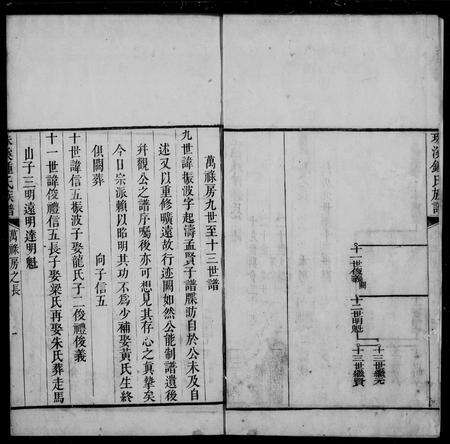 珠溪鍾氏族譜
十一世俊義
十二世明魁
十三世繼元
十三世繼賢
萬祿房九世至十三世譜
九世諱振波字起濤孟賢子譜牒昉自於公未及自
述又以重修曠遠故行迹闕如然公能制譜遺後
并觀公之譜序囑後亦可想見其存心之真摯矣
今日宗派賴以昭明其功不為少補娶黃氏生終
俱闕葬　向子信五
十世諱信五振波子娶龍氏子二俊禮俊義
十一世諱俊禮信五長子娶梁氏再娶朱氏葬走馬
山子三明遠明達明魁
珠溪鍾氏族譜
萬祿房之長